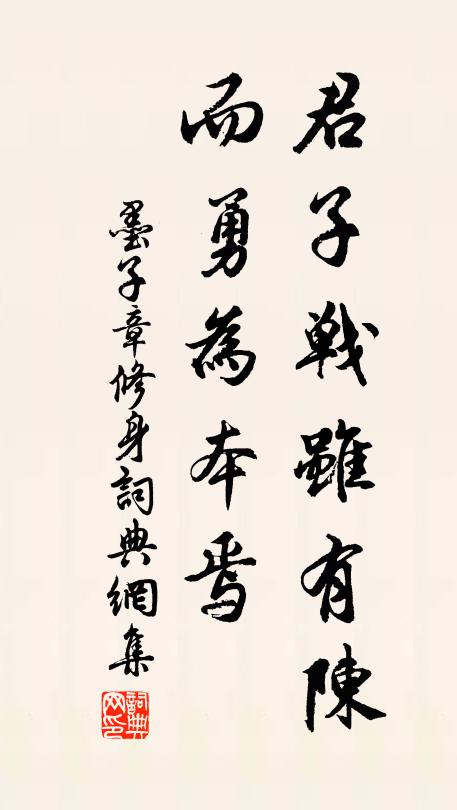 君子戦雖有陳
而勇為本焉
墨子章修身詞典網集
詞典网印